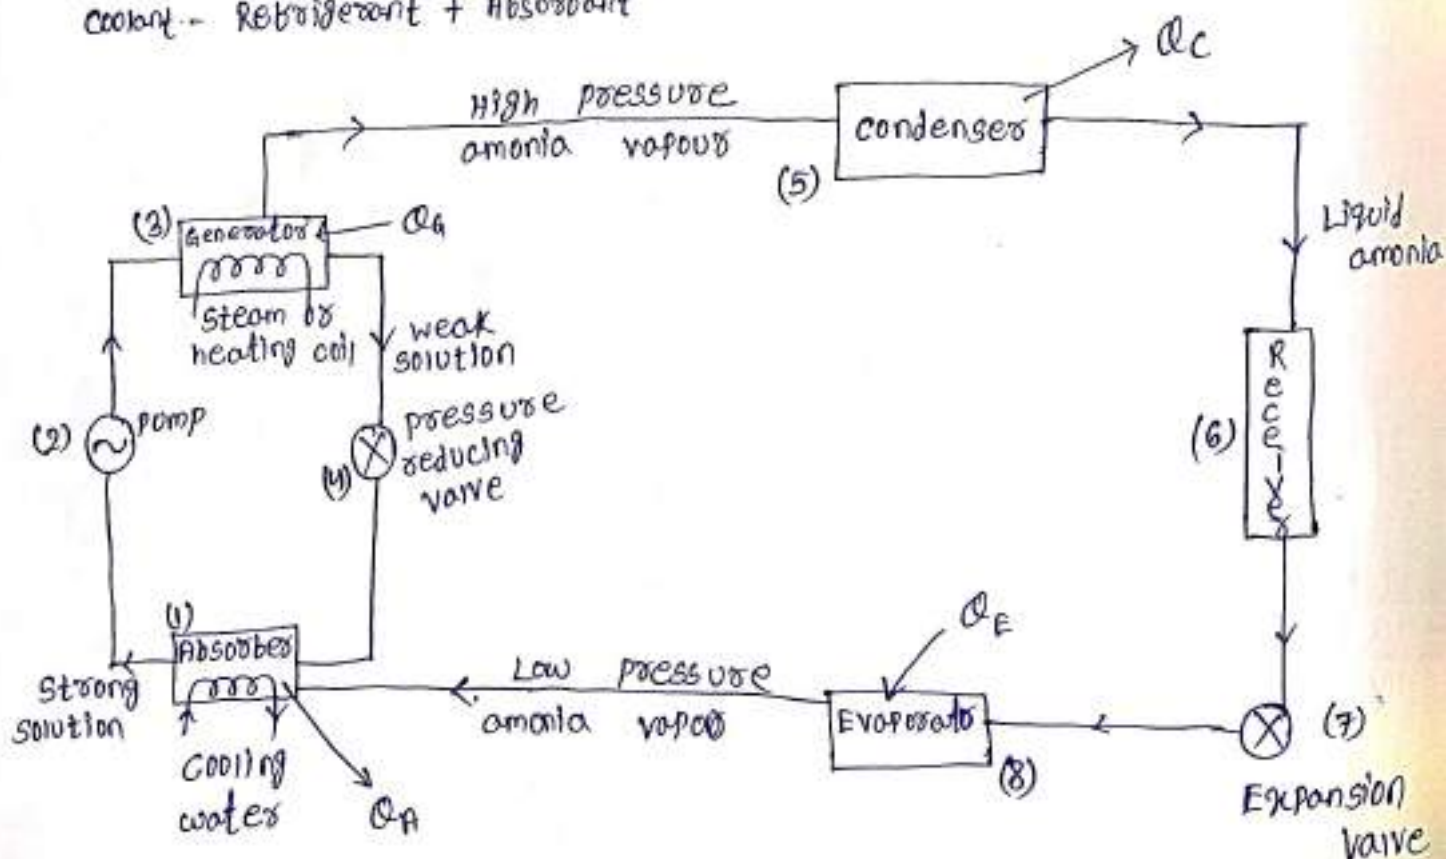 Coolant - Refrigerant + Absorbant
QC
High pressure
amonia vapour
condenser
(5)
(3)
Generator
QG
steam or
heating coil
weak
solution
Liquid
amonia
(2)
pump
pressure
reducing
valve
(4)
Receiver
(6)
(1)
Absorber
strong
solution
cooling
water
QA
Low pressure
amonia vapour
QE
Evaporator
(8)
(7)
Expansion
valve